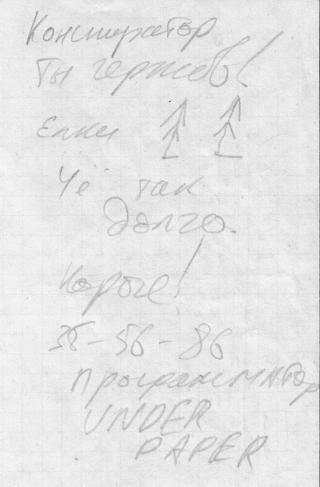 Конспиратор
Ты
Елки
Чё так
долго.
Короче!
-56-86
программатор
UNDER
PAPER